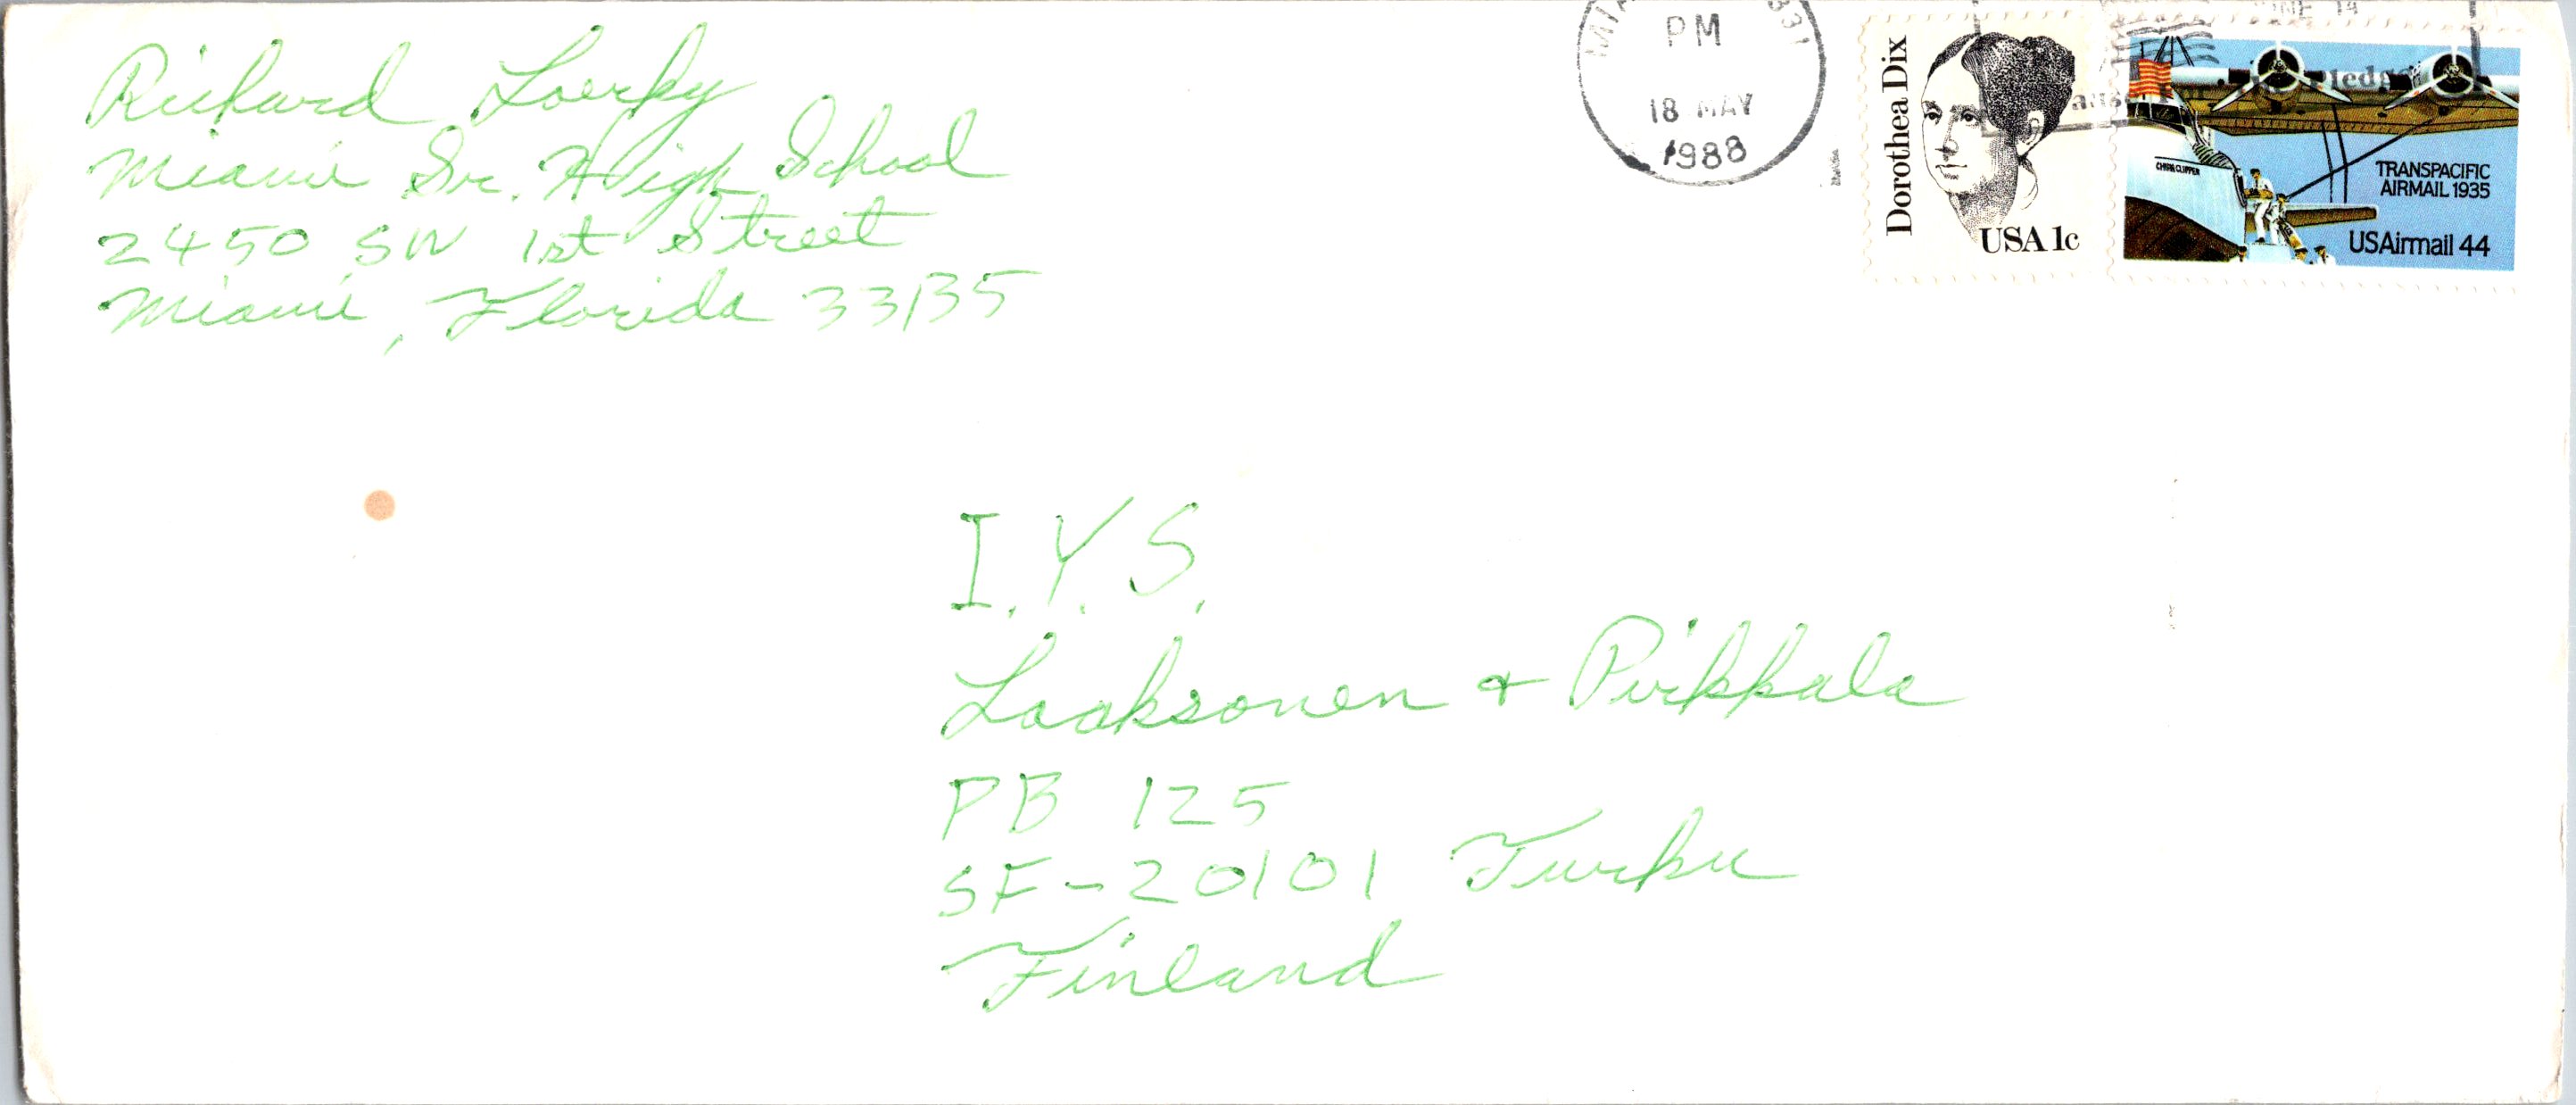 Richard Loerky
Miami Sr. High School
2450 SW 1st Street
Miami, Florida 33135
PM
18 MAY
1988
Dorothea Dix
USA 1c
CHINA CLIPPER
TRANSPACIFIC
AIRMAIL 1935
USAirmail 44
I.Y.S.
Laaksonen + Pirkkala
PB 125
SF-20101 Turku
Finland